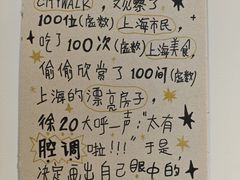 CITYWALK，又观察了
100位(虚数)上海市民，
吃了100次(虚数)上海美食，
偷偷欣赏了100间(虚数)
上海的漂亮房子，
徐20大呼一声："太有
腔调啦!!!"于是，
决定画出自己眼中的